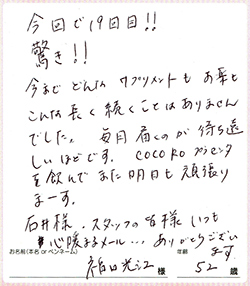 今回で19回目!!
驚き!!
今まで どんな サプリメントも お薬も
こんな長く続くことはありません
でした。毎月届くのが 待ち遠
しいほどです。COCOROプラセンタ
を飲んで また明日も頑張り
まーす。
石井様、スタッフの皆様 いつも
心暖まるメール… ありがとうござい
ます
お名前(本名 or ペンネーム) 年齢
様 52 歳